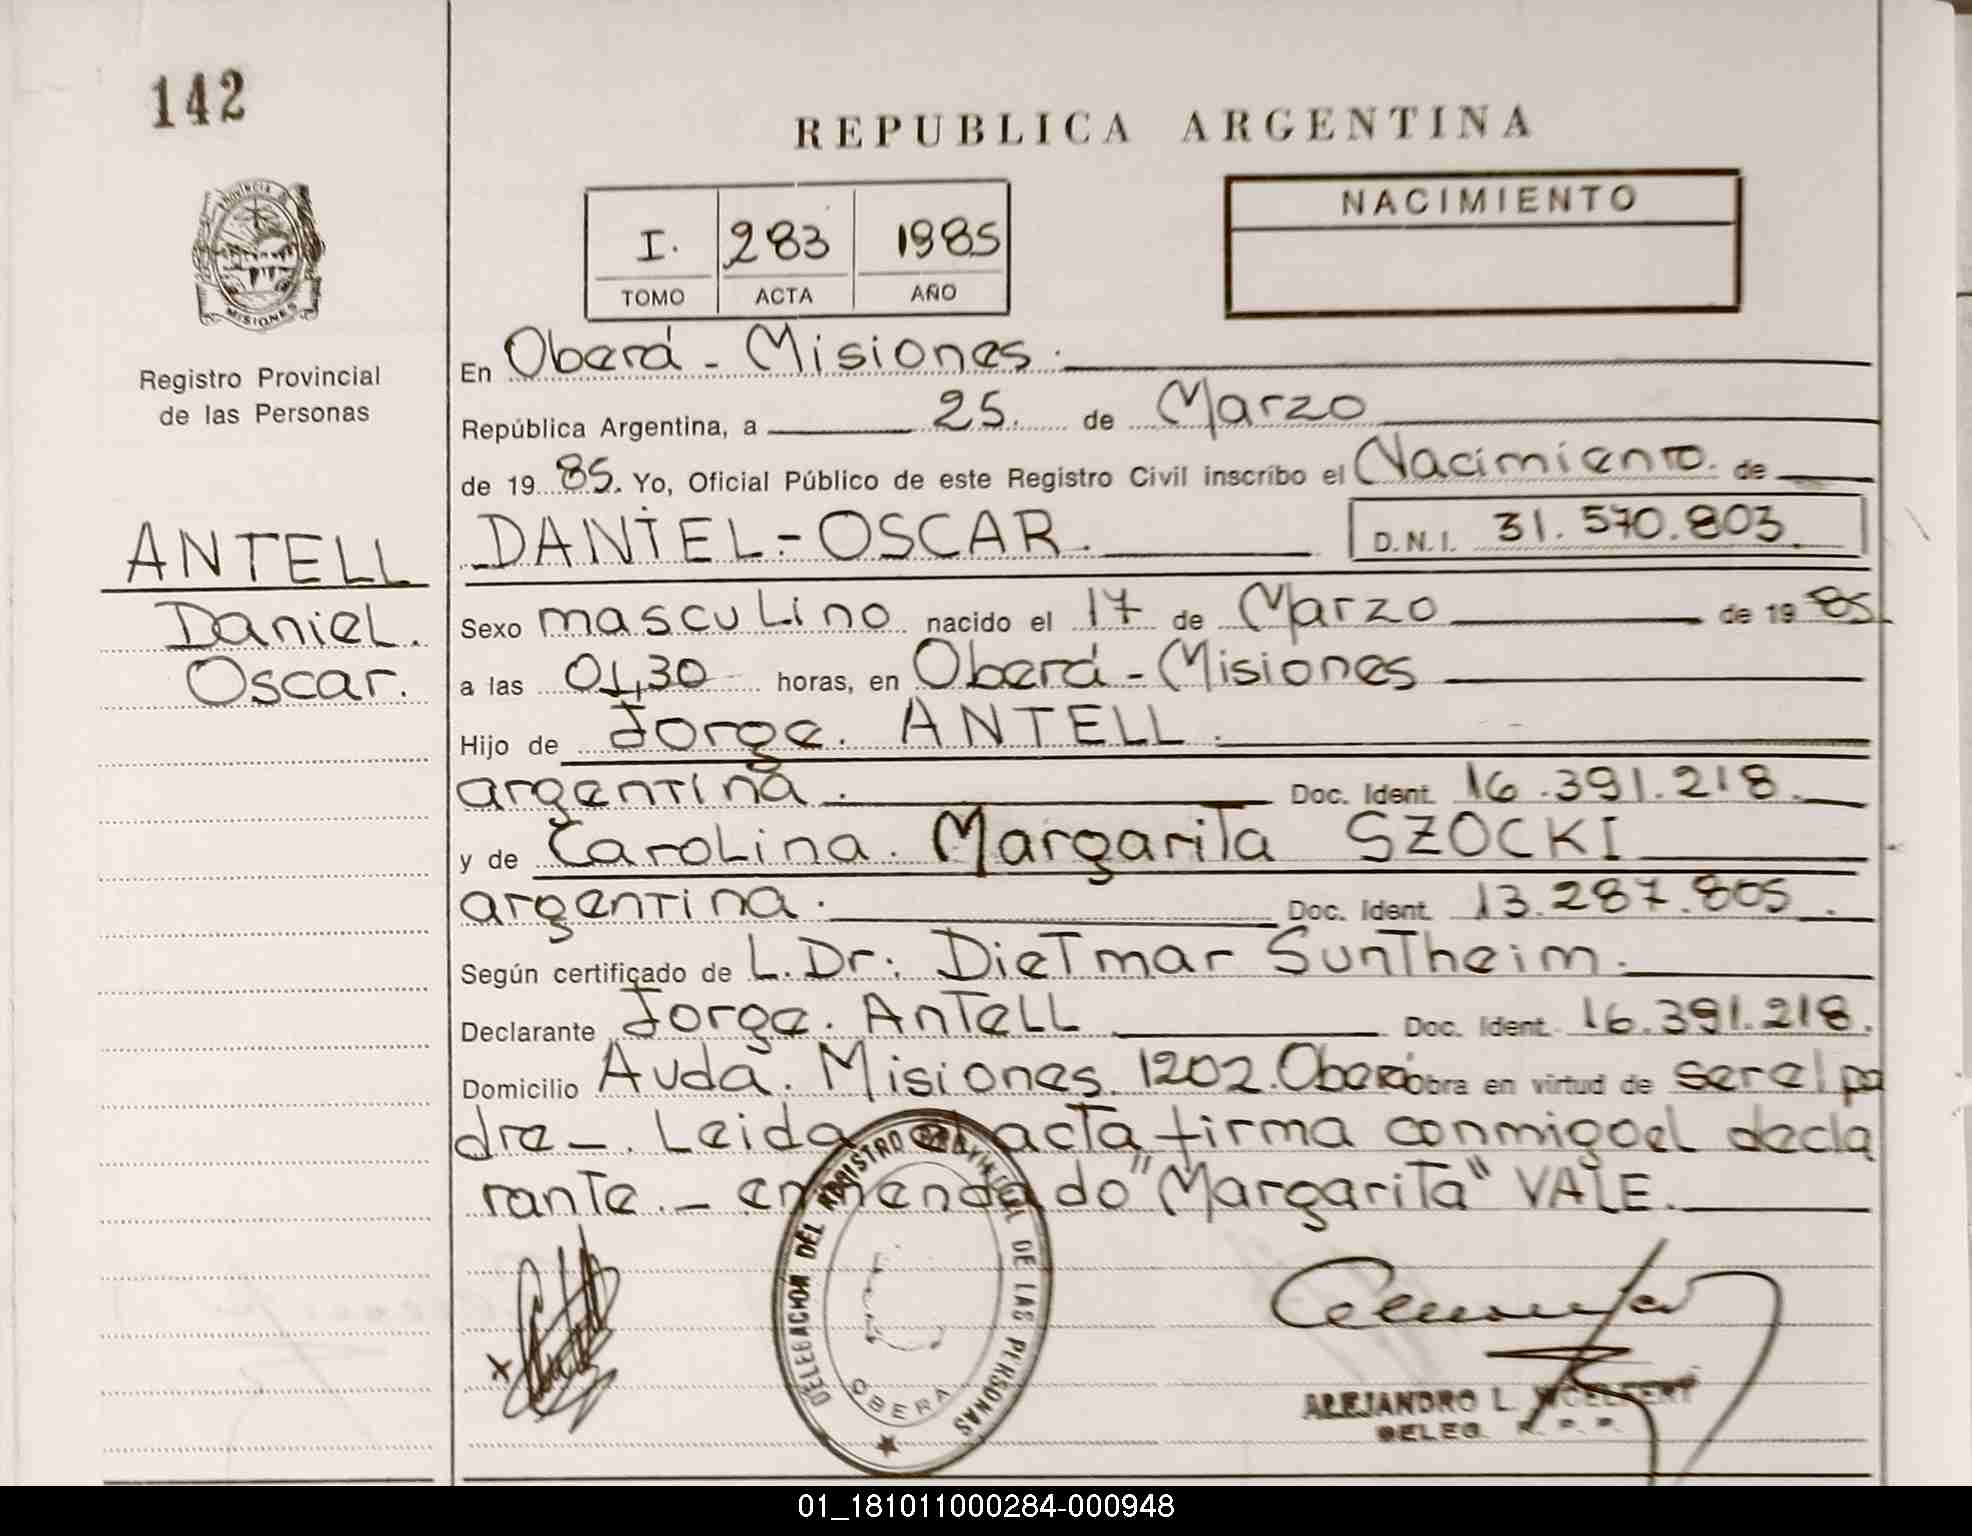 142
REPUBLICA ARGENTINA
PROVINCIA DE
MISIONES
Registro Provincial
de las Personas
I. 283 1985
TOMO ACTA AÑO
NACIMIENTO
En Oberá - Misiones.
República Argentina, a 25. de Marzo
de 1985. Yo, Oficial Público de este Registro Civil inscribo el Nacimiento. de
ANTELL
Daniel.
Oscar.
DANIEL-OSCAR. D.N.I. 31.570.803.
Sexo masculino nacido el 17 de Marzo de 1985
a las 01,30 horas, en Oberá - Misiones
Hijo de Jorge. ANTELL.
argentina. Doc. Ident. 16.391.218.
y de Carolina. Margarita SZOCKI
argentina. Doc. Ident. 13.287.805.
Según certificado de L. Dr. Dietmar Suntheim.
Declarante Jorge. Antell Doc. Ident. 16.391.218.
Domicilio Avda. Misiones. 1202. Oberá obra en virtud de ser el pa
dre -. Leida el acta firma conmigo el decla
rante. - enmendado "Margarita" VALE.
DELEGACION DEL REGISTRO PROVINCIAL DE LAS PERSONAS
OBERA
ALEJANDRO L. WOELFERT
DELEG. R. P. P.
01_181011000284-000948